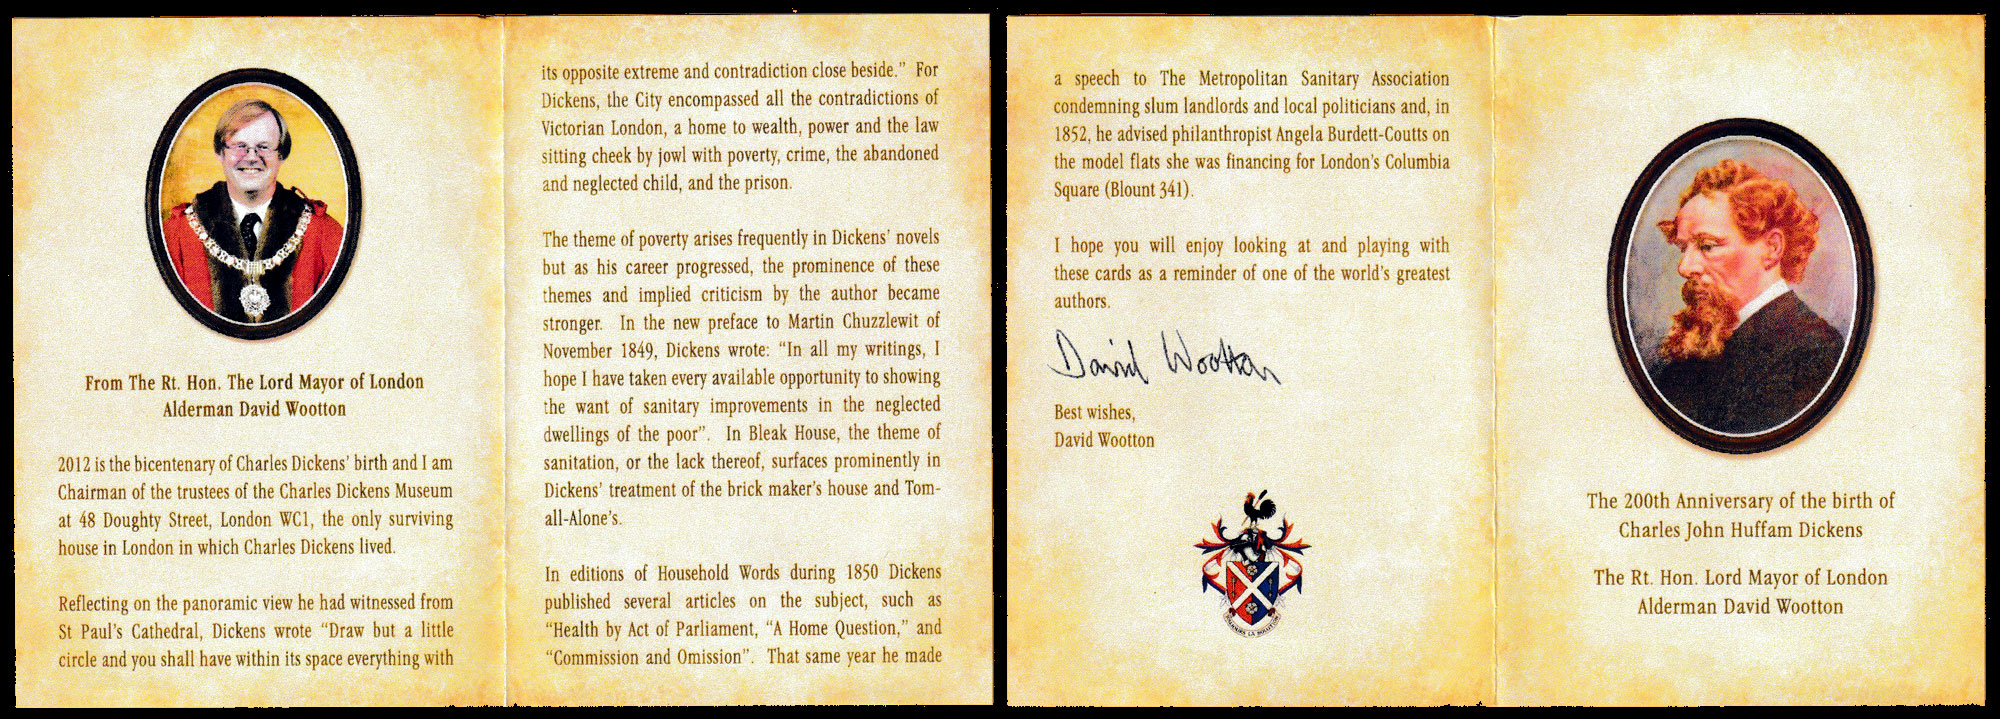 From The Rt. Hon. The Lord Mayor of London
Alderman David Wootton
2012 is the bicentenary of Charles Dickens' birth and I am
Chairman of the trustees of the Charles Dickens Museum
at 48 Doughty Street, London WC1, the only surviving
house in London in which Charles Dickens lived.
Reflecting on the panoramic view he had witnessed from
St Paul's Cathedral, Dickens wrote "Draw but a little
circle and you shall have within its space everything with
its opposite extreme and contradiction close beside." For
Dickens, the City encompassed all the contradictions of
Victorian London, a home to wealth, power and the law
sitting cheek by jowl with poverty, crime, the abandoned
and neglected child, and the prison.
The theme of poverty arises frequently in Dickens' novels
but as his career progressed, the prominence of these
themes and implied criticism by the author became
stronger. In the new preface to Martin Chuzzlewit of
November 1849, Dickens wrote: "In all my writings, I
hope I have taken every available opportunity to showing
the want of sanitary improvements in the neglected
dwellings of the poor". In Bleak House, the theme of
sanitation, or the lack thereof, surfaces prominently in
Dickens' treatment of the brick maker's house and Tom-
all-Alone's.
In editions of Household Words during 1850 Dickens
published several articles on the subject, such as
"Health by Act of Parliament, "A Home Question," and
"Commission and Omission". That same year he made
a speech to The Metropolitan Sanitary Association
condemning slum landlords and local politicians and, in
1852, he advised philanthropist Angela Burdett-Coutts on
the model flats she was financing for London's Columbia
Square (Blount 341).
I hope you will enjoy looking at and playing with
these cards as a reminder of one of the world's greatest
authors.
David Wootton
Best wishes,
David Wootton
The 200th Anniversary of the birth of
Charles John Huffam Dickens
The Rt. Hon. Lord Mayor of London
Alderman David Wootton